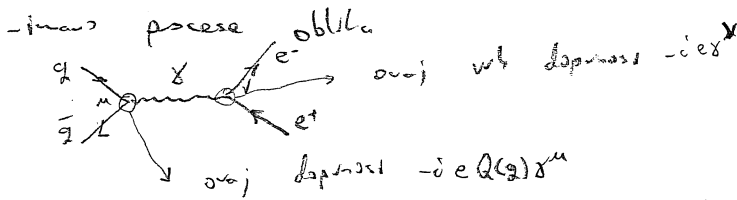 - imamo procese oblika
q γ e⁻
ovaj vrh doprinosi -ieγ^ν
μ
q̄ e⁺
ovaj doprinosi -ieQ(q)γ^μ